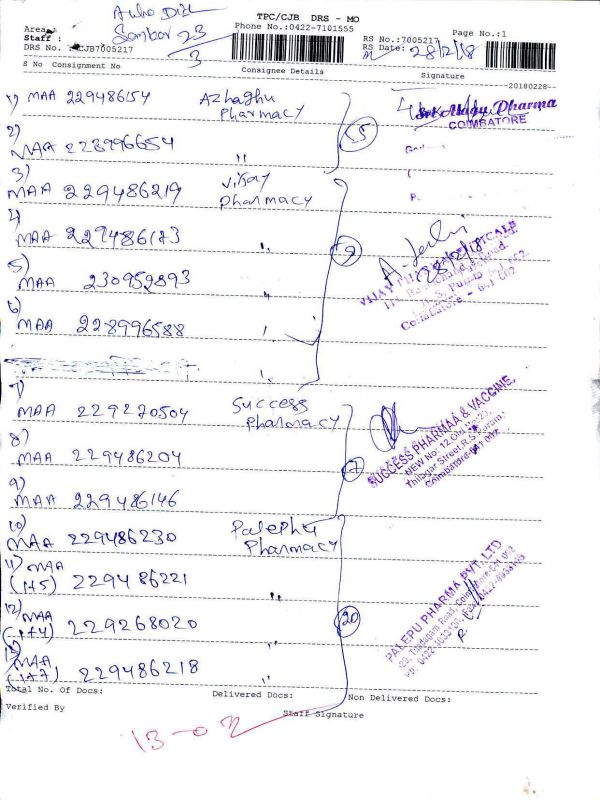 TPC/CJB DRS - MO
Phone No.:0422-7101555
Area:
Staff :
DRS No. : CJB7005217
RS No.:7005217
Page No.:1
RS Date: 28/2/18
23
3
S No Consignment No Consignee Details Signature
20180228
1) MAA 229486154 Azhaghu Pharmacy
15
Pharma
COIMBATORE
2)
MAA 228996654 "
3)
MAA 229486219 Vijay Pharmacy
4)
MAA 229486173 "
28/2/18
Coimbatore - 641 002
5)
MAA 230952893 "
6)
MAA 228996588 "
7)
MAA 229270504 Success Pharmacy
SUCCESS PHARMAA & VACCINE,
NEW No. 12, Old No.23,
Thilagar Street, R.S.Puram,
Coimbatore-641 002
8)
MAA 229486204
9)
MAA 229486146
10)
MAA 229486230 Palephu Pharmacy
PALEPU PHARMA PVT. LTD
11) MAA
(1+5) 229486221 "
12) MAA
(1+4) 229268020 "
20
13) MAA
(1+7) 229486218 "
Total No. Of Docs: Delivered Docs: Non Delivered Docs:
Verified By Staff Signature
13-02